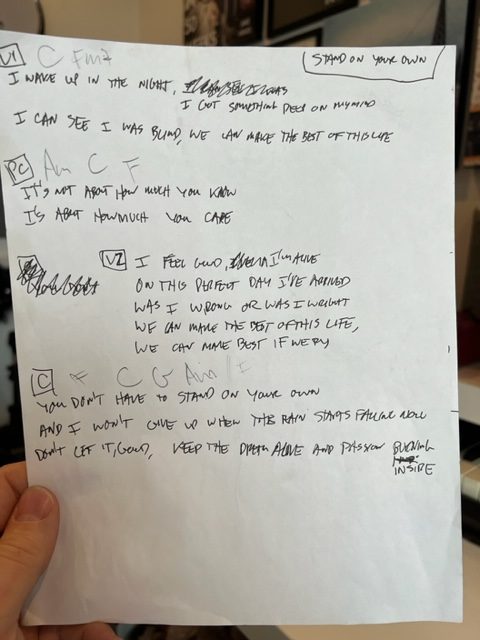 V1 C Fm7
STAND ON YOUR OWN
I WAKE UP IN THE NIGHT,
I GOT SOMETHING DEEP ON MY MIND
I CAN SEE I WAS BLIND, WE CAN MAKE THE BEST OF THIS LIFE
PC Am C F
IT'S NOT ABOUT HOW MUCH YOU KNOW
IT'S ABOUT HOW MUCH YOU CARE
V2 I FEEL GOOD, I'M ALIVE
ON THIS PERFECT DAY I'VE ARRIVED
WAS I WRONG OR WAS I WRIGHT
WE CAN MAKE THE BEST OF THIS LIFE,
WE CAN MAKE BEST IF WE TRY
C F C G Am
YOU DON'T HAVE TO STAND ON YOUR OWN
AND I WON'T GIVE UP WHEN THE RAIN STARTS FALLING NOW
DON'T LET IT, KEEP THE DREAM ALIVE AND PASSION BURNING
INSIDE